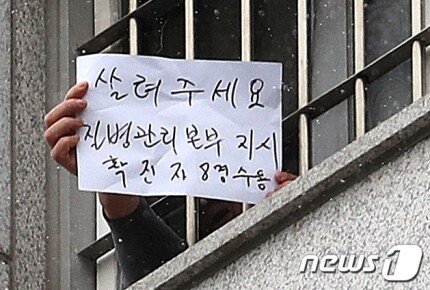 살려주세요
질병관리본부 지시
확진자 8명수용
news1